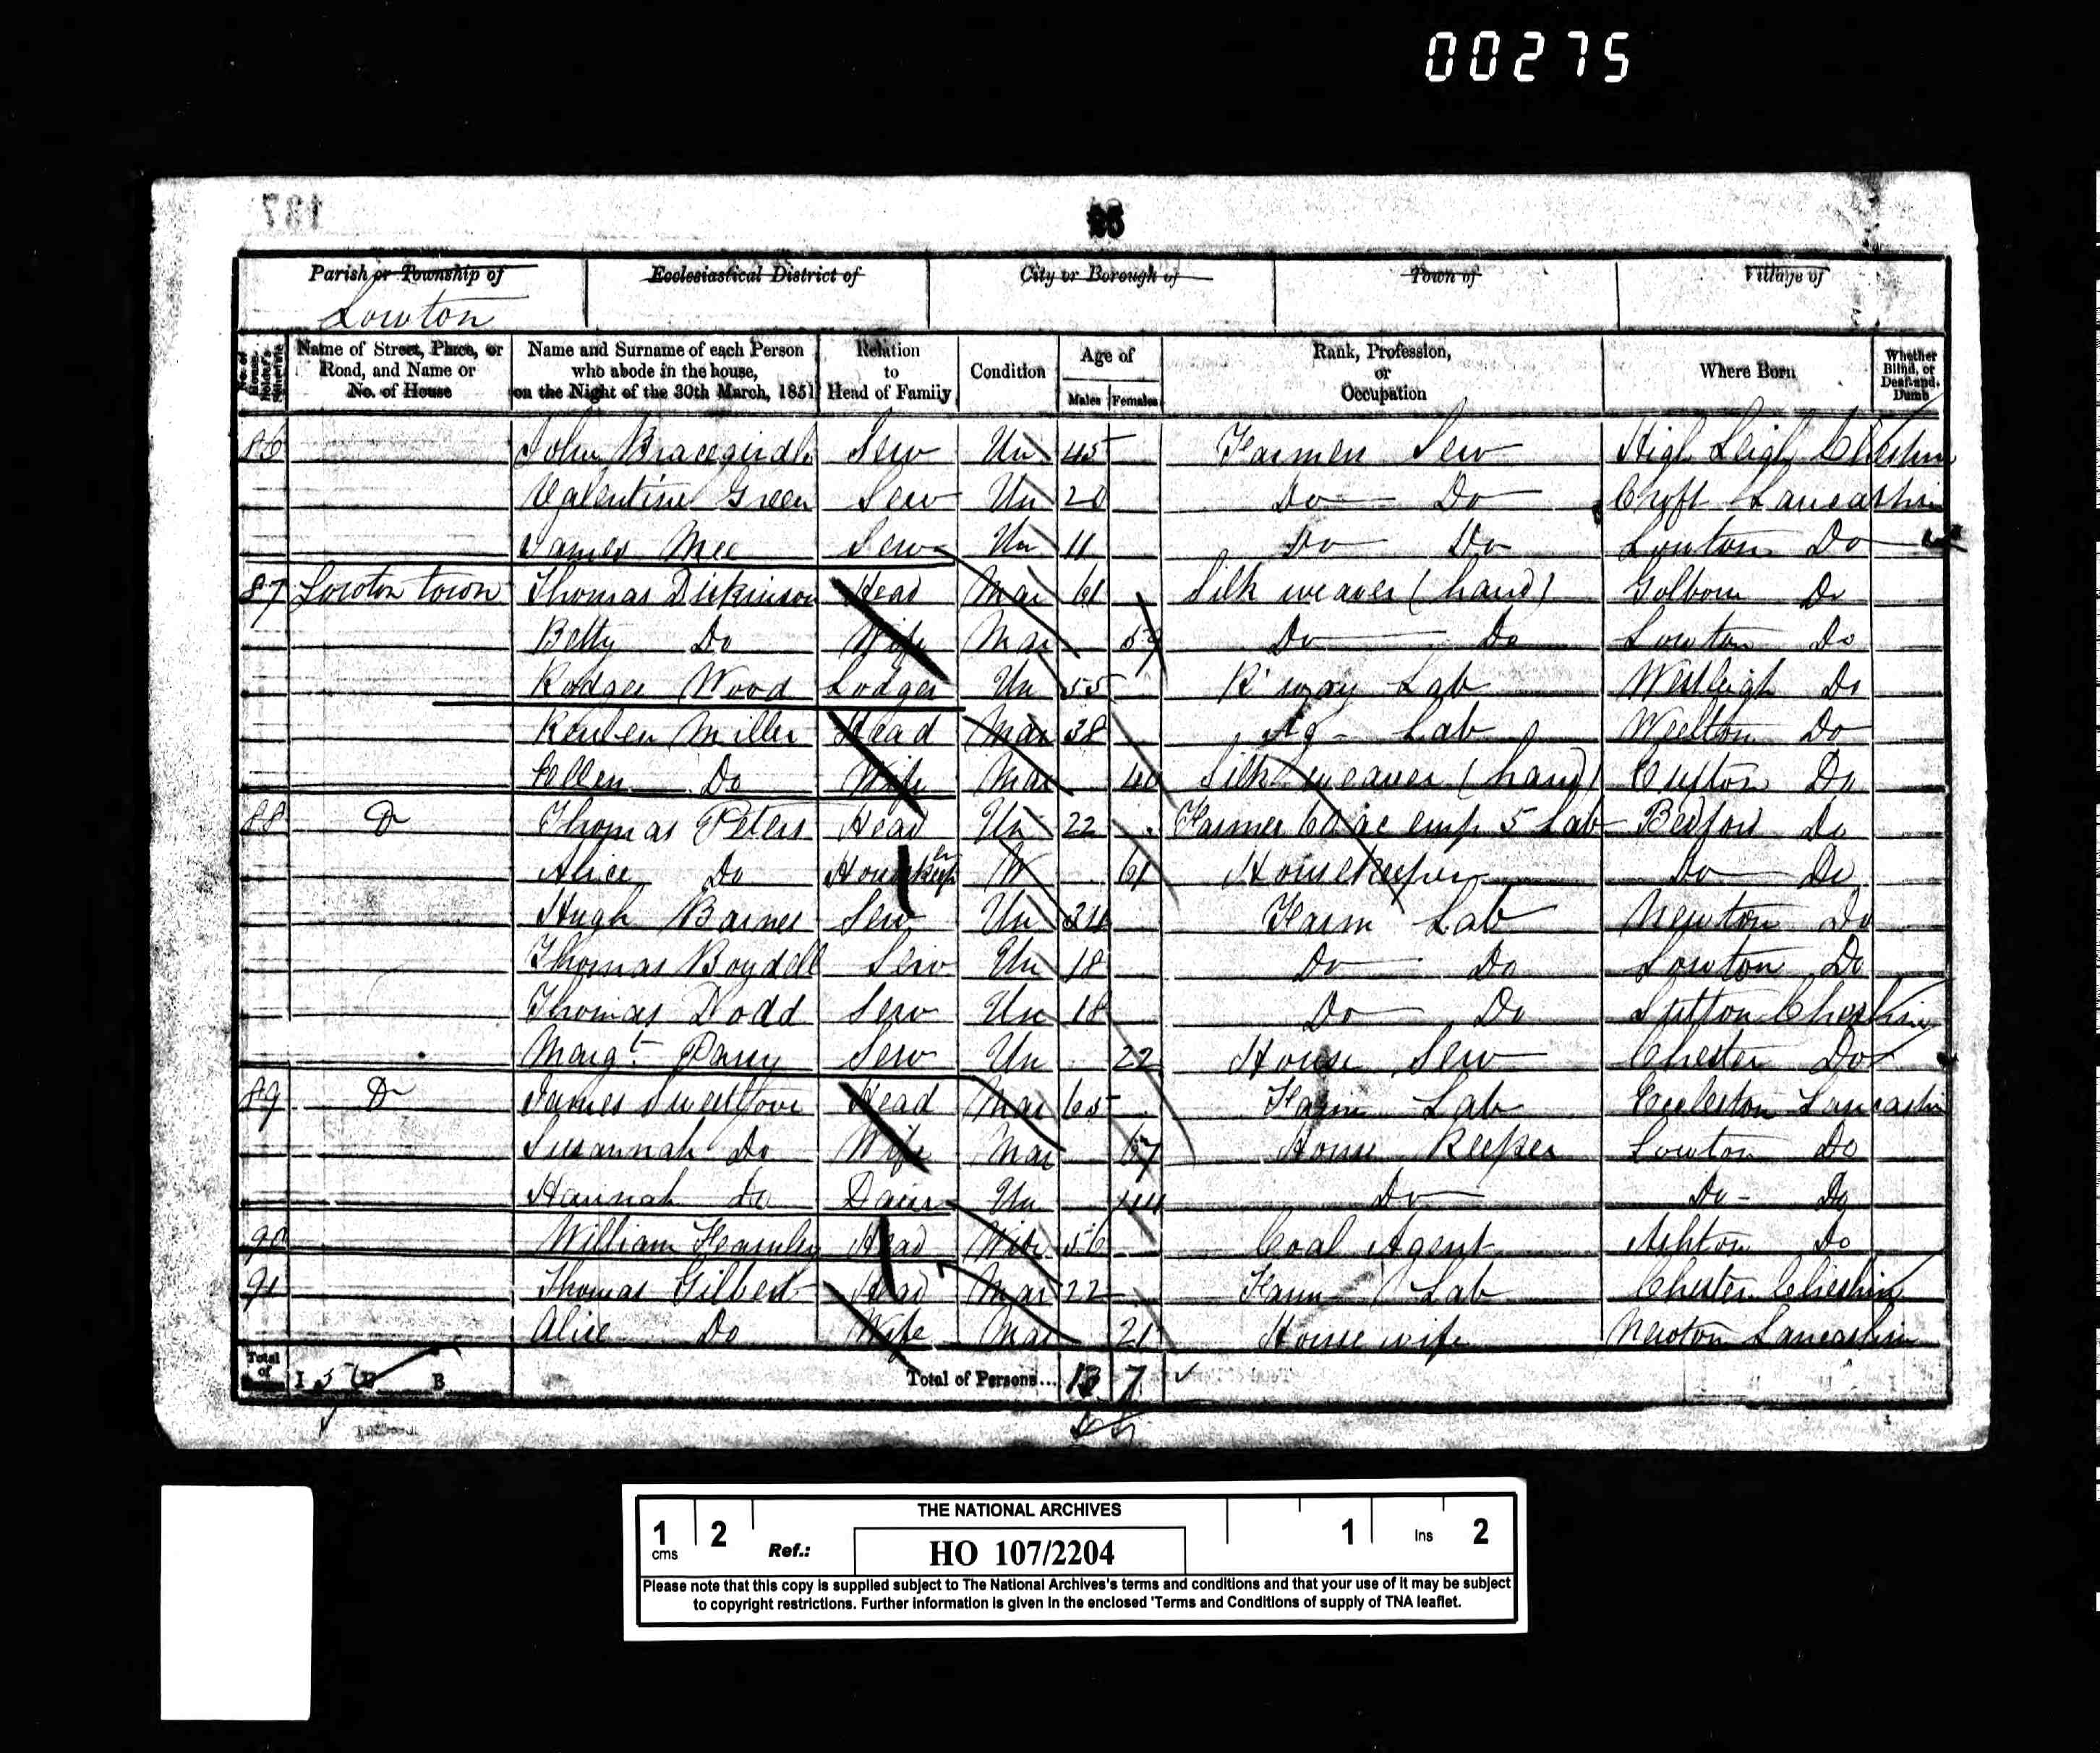 00275
137
25
Parish or Township of
Ecclesiastical District of
City or Borough of
Town of
Village of
Lowton
No. of House-holder's Schedule
Name of Street, Place, or Road, and Name or No. of House
Name and Surname of each Person who abode in the house, on the Night of the 30th March, 1851
Relation to Head of Family
Condition
Age of
Males Females
Rank, Profession, or Occupation
Where Born
Whether Blind, or Deaf-and-Dumb
86 John Bracegirdle Serv Un 45 Farmer Serv High Leigh Cheshire
Valentine Green Serv Un 20 Do Do Croft Lancashire
James Mee Serv Un 11 Do Do Lowton Do
87 Lowton town Thomas Dickinson Head Mar 61 Silk weaver (hand) Golborne Do
Betty Do Wife Mar 59 Do Do Lowton Do
Rodger Wood Lodger Un 55 R'way Lab Westleigh Do
Reuben Miller Head Mar 38 Ag Lab Do
Ellen Do Wife Mar 40 Silk weaver (hand) Do
88 Do Thomas Peters Head Un 22 Farmer 60 ac emp 5 Lab Bedford Do
Alice Do Housekeeper W 61 Housekeeper Do Do
Hugh Barnes Serv Un 24 Farm Lab Newton Do
Thomas Boydell Serv Un 18 Do Do Lowton Do
Thomas Dodd Serv Un 18 Do Do Sutton Cheshire
Margt Parry Serv Un 22 House Serv Chester Do
89 Do James Sweetlove Head Mar 65 Farm Lab Eccleston Lancashire
Susannah Do Wife Mar 67 House Keeper Lowton Do
Hannah Do Daur Un 44 Do Do Do
90 William Fearnley Head 56 Coal Agent Ashton Do
91 Thomas Gilbert Head Mar 22 Farm Lab Chester Cheshire
Alice Do Wife Mar 21 House wife Newton Lancashire
Total of
I 5 B
Total of Persons... 13 7
THE NATIONAL ARCHIVES
1 cms 2
Ref.: HO 107/2204
1 Ins 2
Please note that this copy is supplied subject to The National Archives's terms and conditions and that your use of it may be subject
to copyright restrictions. Further information is given in the enclosed 'Terms and Conditions of supply of TNA leaflet.